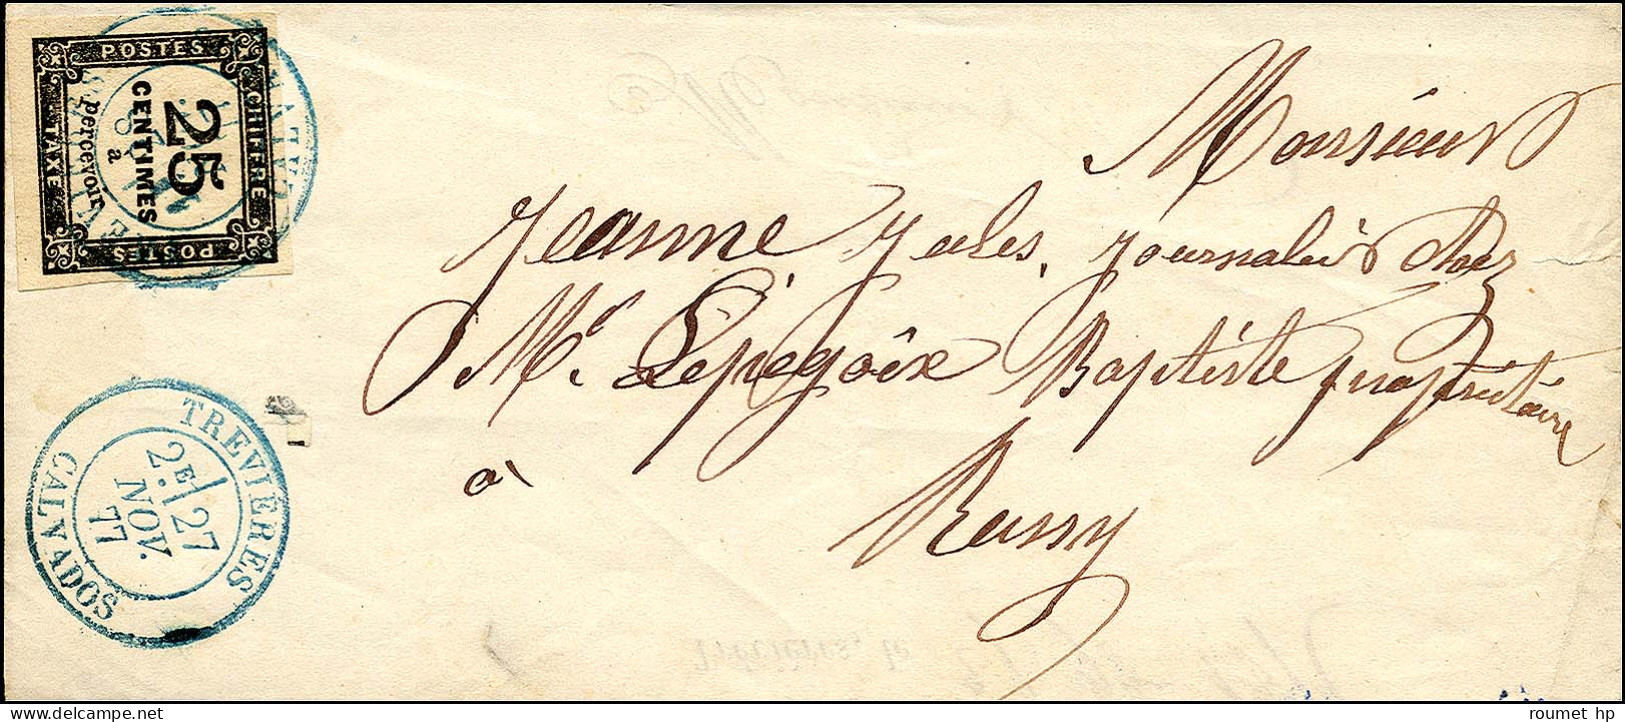 POSTES
CHIFFRE
TAXE
POSTES
25
CENTIMES
à
percevoir
Monsieur
Jeanne Jules, journalier chez
Mr Lepegoix Baptiste propriétaire
à
Russy
TREVIÈRES
2E 27
NOV.
77
CALVADOS
roumet hp